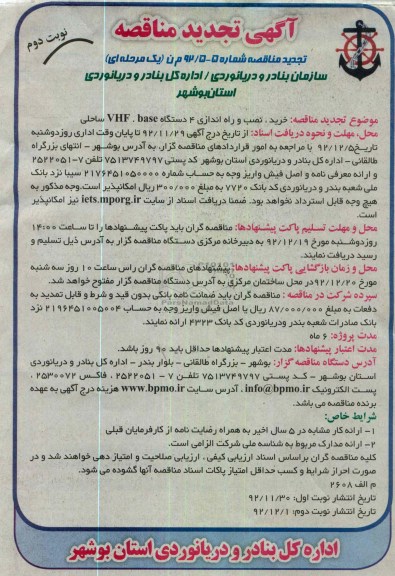 آگهی تجدید مناقصه
نوبت دوم
تجدید مناقصه شماره ۵-۹۲/۵ م ن (یک مرحله ای)
سازمان بنادر و دریانوردی / اداره کل بنادر و دریانوردی
استان بوشهر
موضوع تجدید مناقصه: خرید ، نصب و راه اندازی ۴ دستگاه VHF . base ساحلی
محل، مهلت و نحوه دریافت اسناد: از تاریخ درج آگهی ۹۲/۱۱/۲۹ تا پایان وقت اداری روز دوشنبه
تاریخ ۹۲/۱۲/۵ با مراجعه به امور قراردادهای مناقصه گزار، به آدرس بوشهر - انتهای بزرگراه
طالقانی - اداره کل بندر و دریانوردی استان بوشهر کد پستی ۷۵۱۳۷۴۹۷۹۷ تلفن ۷-۲۵۲۲۰۵۱
و ارائه معرفی نامه و اصل فیش واریز وجه به حساب شماره ۲۱۷۶۴۵۱۰۵۰۰۰۰ سیبا نزد بانک
ملی شعبه بندر و دریانوردی کد بانک ۷۷۲۰ به مبلغ ۳۰۰/۰۰۰ ریال امکانپذیر است. وجه مذکور به
هیچ وجه قابل استرداد نخواهد بود. ضمنا دریافت اسناد از سایت iets.mporg.ir نیز امکانپذیر
است.
محل و مهلت تسلیم پاکت پیشنهادها: مناقصه گران باید پاکت پیشنهادها را تا ساعت ۱۴:۰۰
روز دوشنبه مورخ ۹۲/۱۲/۱۹ به دبیرخانه مرکزی دستگاه مناقصه گزار به آدرس ذیل تسلیم و
رسید دریافت نمایند.
محل و زمان بازگشایی پاکت پیشنهادها: پیشنهادهای مناقصه گران راس ساعت ۱۰ روز سه شنبه
مورخ ۹۲/۱۲/۲۰ در محل ساختمان مرکزی به آدرس دستگاه مناقصه گزار مفتوح خواهد شد.
سپرده شرکت در مناقصه : مناقصه گران باید ضمانت نامه بانکی بدون قید و شرط و قابل تمدید به
دفعات به مبلغ ۸۷/۰۰۰/۰۰۰ ریال یا اصل فیش واریز وجه به حساب ۲۱۹۶۴۵۱۰۰۵۰۰۴ نزد
بانک صادرات شعبه بندر و دریانوردی کد بانک ۴۳۲۳ ارائه نمایند.
مدت پروژه: ۶ ماه
مدت اعتبار پیشنهادها: مدت اعتبار پیشنهادها حداقل باید ۹۰ روز باشد.
آدرس دستگاه مناقصه گزار: بوشهر - بزرگراه طالقانی - بلوار بندر - اداره کل بنادر و دریانوردی
استان بوشهر - کد پستی ۷۵۱۳۷۴۹۷۹۷ تلفن ۷ - ۲۵۲۲۰۵۱ ، فاکس ۲۵۳۰۰۷۲ ،
پست الکترونیک info@bpmo.ir ، آدرس سایت www.bpmo.ir هزینه درج آگهی به عهده
برنده مناقصه می باشد.
شرایط خاص:
۱- ارائه کار مشابه در ۵ سال اخیر به همراه رضایت نامه از کارفرمایان قبلی
۲- ارائه مدارک مربوط به شناسه ملی شرکت الزامی است.
کلیه مناقصه گران براساس اسناد ارزیابی کیفی ، ارزیابی صلاحیت و امتیاز دهی خواهند شد و در
صورت احراز شرایط و کسب حداقل امتیاز پاکات اسناد مناقصه آنها گشوده می شود.
م الف ۲۶۰۸
تاریخ انتشار نوبت اول: ۹۲/۱۱/۳۰
تاریخ انتشار نوبت دوم: ۹۲/۱۲/۱
اداره کل بنادر و دریانوردی استان بوشهر